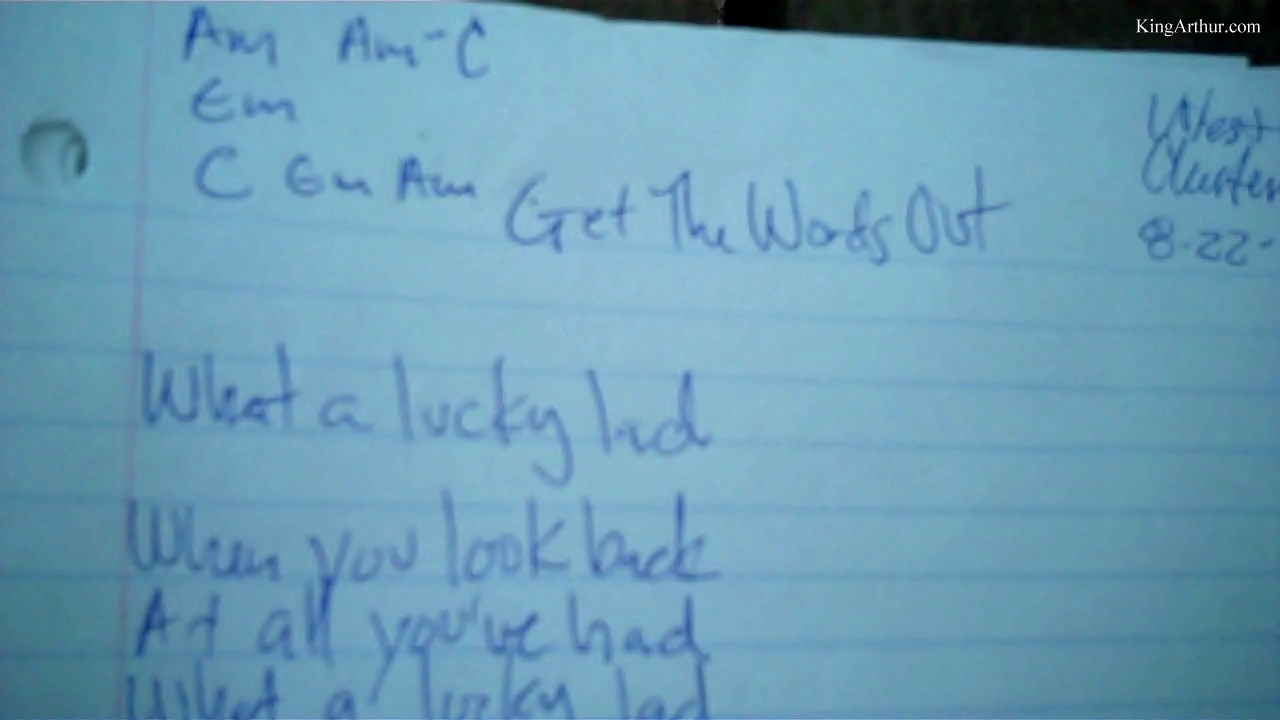 KingArthur.com
Am Am-C
Em
C Em Am
Get The Words Out
West
Cluster
8-22-
What a lucky lad
When you look back
At all you've had
What a lucky lad